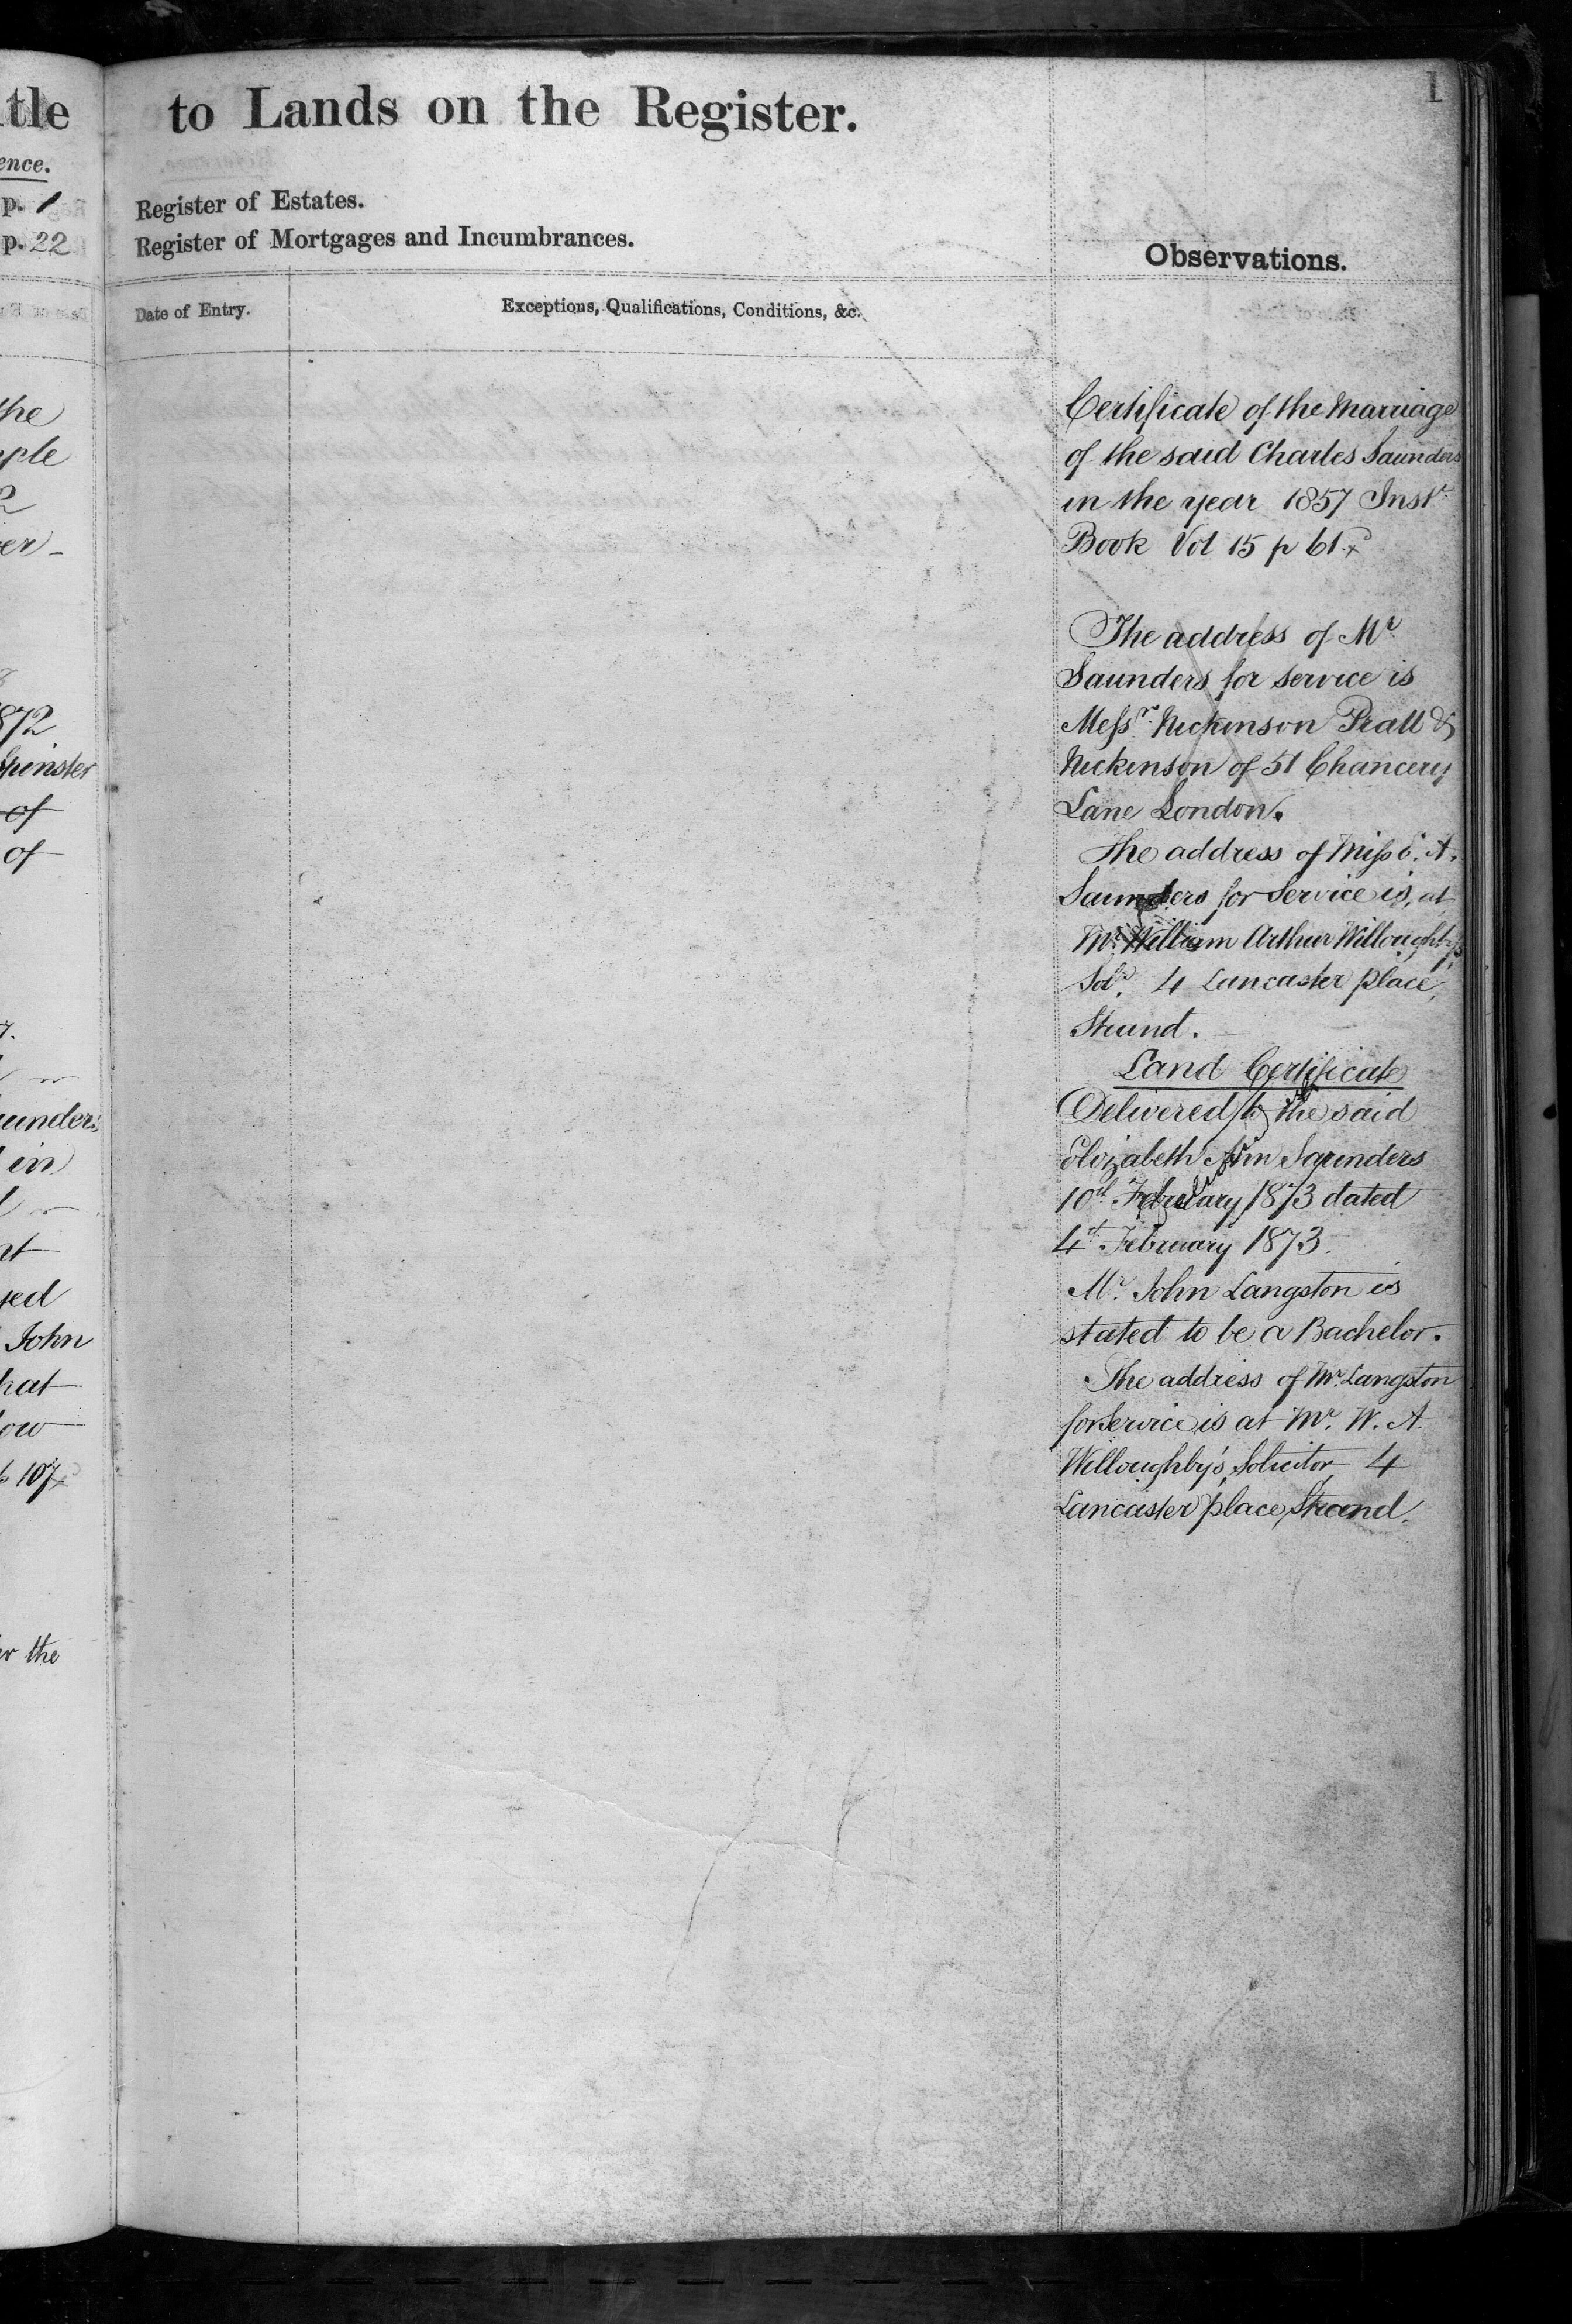 tle
ence.
p. 1
p. 22
the
ple
2
er-
872
Spinster
of
of
7.
unders
in
at
yed
John
hat
ow
107
r the
to Lands on the Register.
1
Register of Estates.
Register of Mortgages and Incumbrances.
Observations.
Date of Entry.
Exceptions, Qualifications, Conditions, &c.
Certificate of the Marriage
of the said Charles Saunders
in the year 1857 Inst.
Book Vol 15 p 61
The address of Mr.
Saunders for service is
Messrs. Nickinson Prall &
Nickinson of 51 Chancery
Lane London.
The address of Miss E. A.
Saunders for Service is, at
Mr. William Arthur Willoughby's
Solr. 4 Lancaster place,
Strand. —
Land Certificate
Delivered to the said
Elizabeth Ann Saunders
10th February 1873 dated
4th February 1873.
Mr. John Langston is
stated to be a Bachelor.
The address of Mr. Langston
for service is at Mr. W. A.
Willoughby's, Solicitor 4
Lancaster place, Strand.